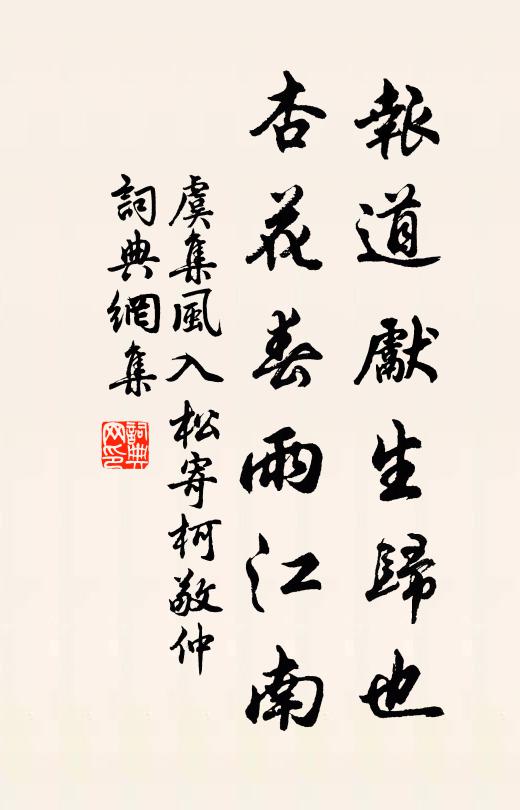 報道獻生歸也
杏花春雨江南
虞集風入松寄柯敬仲
詞典網集
詞典
网印